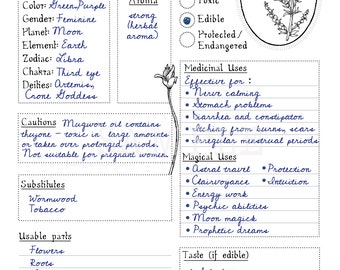 Color: Green, Purple
Gender: Feminine
Planet: Moon
Element: Earth
Zodiac: Libra
Chakra: Third eye
Deities: Artemis,
Crone Goddess
Aroma
strong
(herbal
aroma)
Toxic
Edible
Protected /
Endangered
Cautions Mugwort oil contains
thuyone - toxic in large amounts
or taken over prolonged periods.
Not suitable for pregnant women.
Substitutes
Wormwood
Tobacco
Usable parts
Flowers
Roots
Medicinal Uses
Effective for :
• Nerve calming
• Stomach problems
• Diarrhea and constipaton
• Itching from burns, scars
• Irregular menstrual periods
Magical Uses
• Astral travel • Protection
• Clairvoyance • Intuition
• Energy work
• Psychic abilities
• Moon magick
• Prophetic dreams
Taste (if edible)